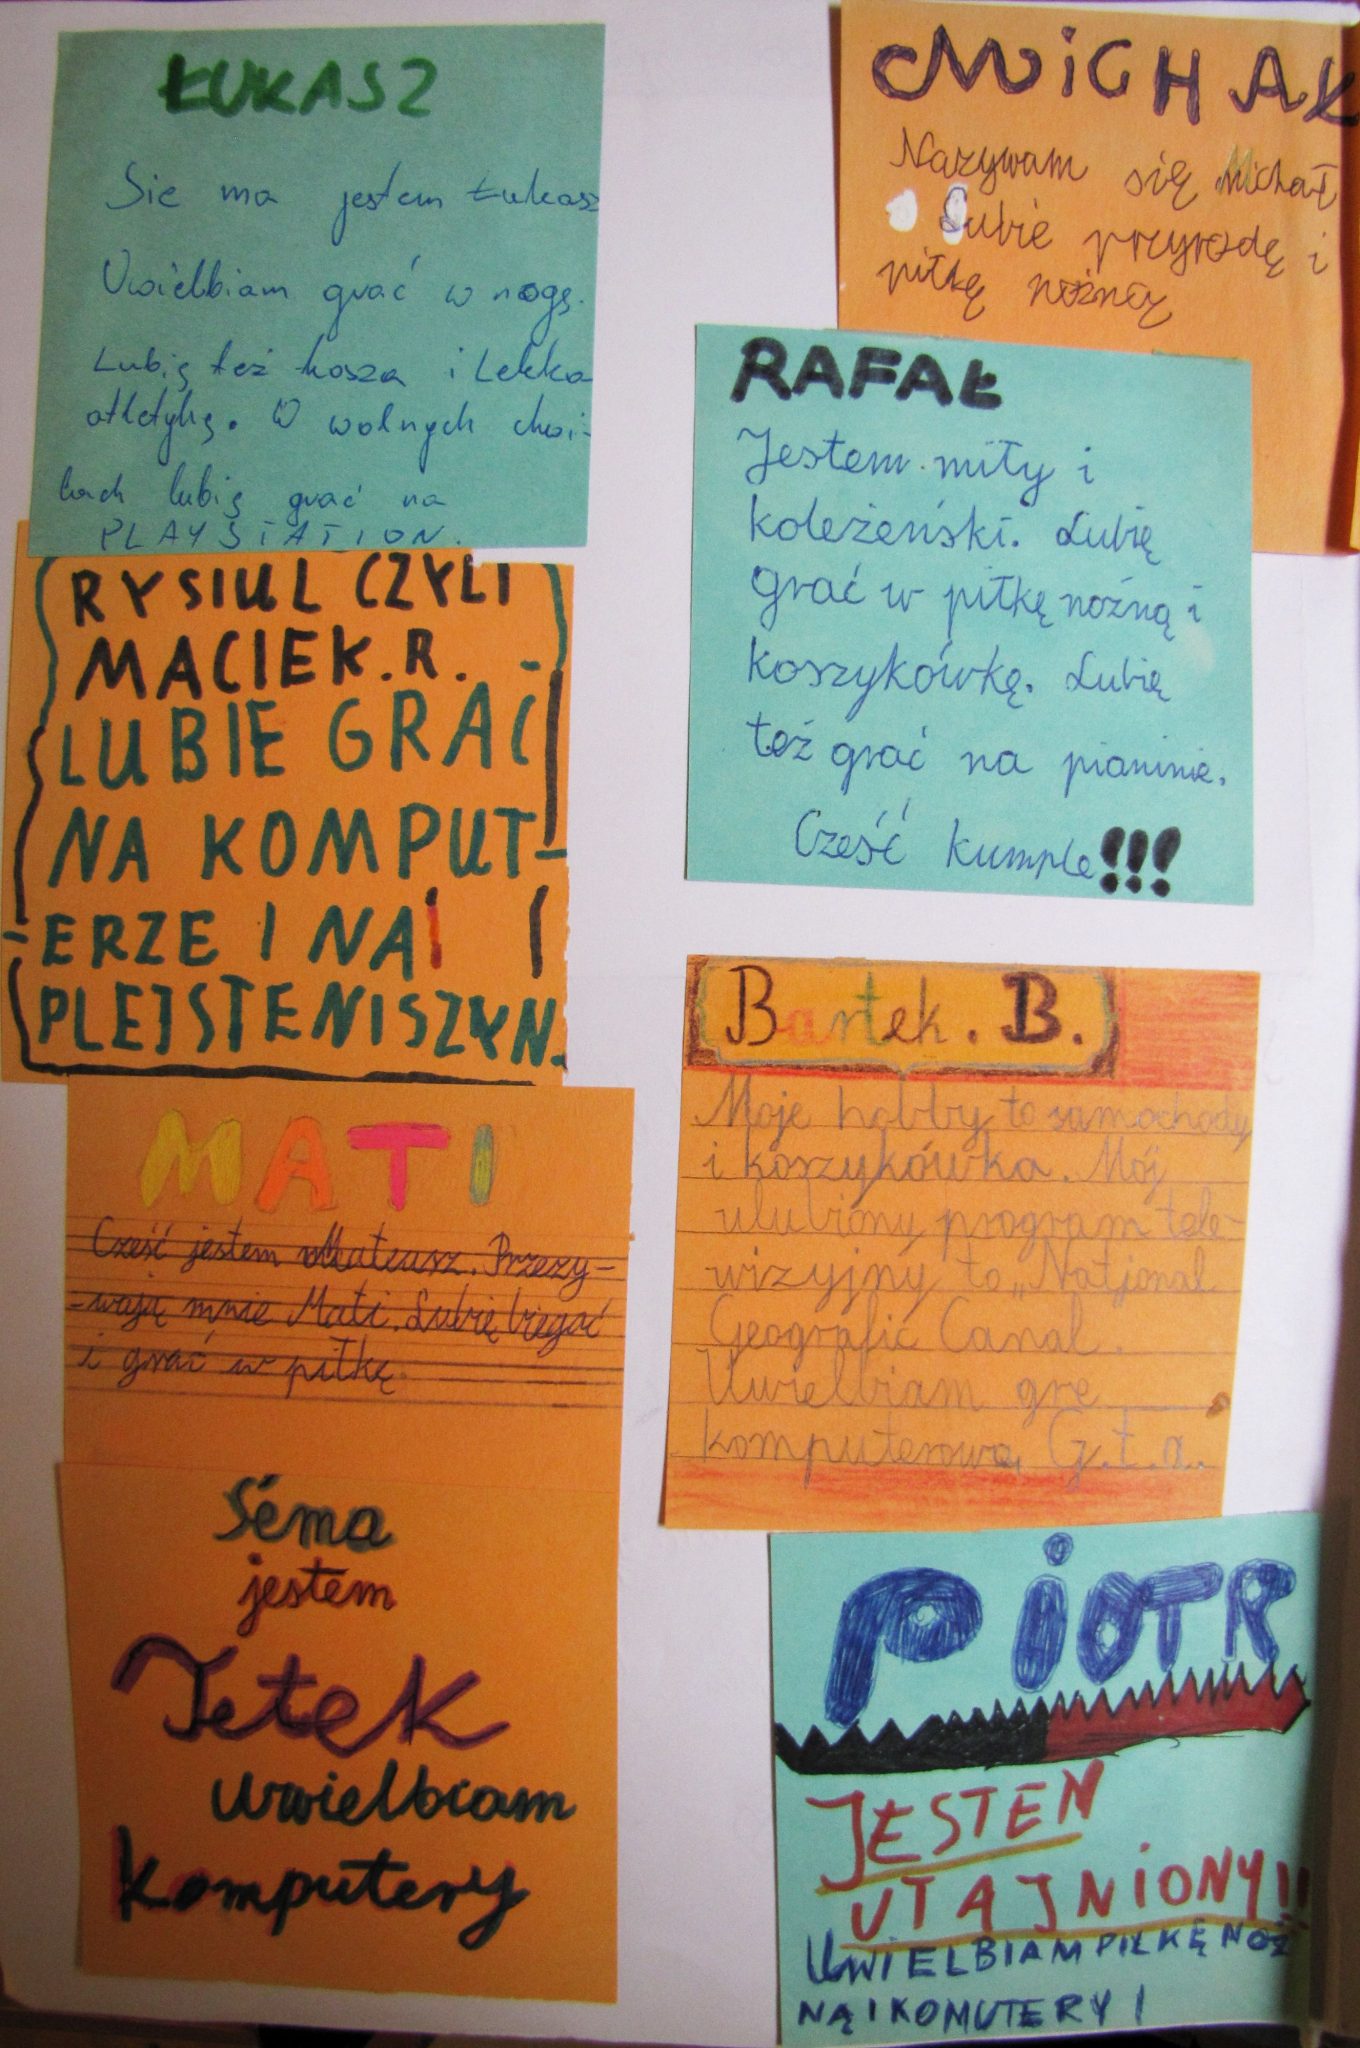 ŁUKASZ
Sie ma jestem Łukasz
Uwielbiam grać w nogę.
Lubię też kosza i Lekko
atletykę. W wolnych chwi-
lach lubię grać na
PLAYSTATION.
RYSIUL CZYLI
MACIEK.R.
LUBIE GRAĆ
NA KOMPUT-
ERZE I NA
PLEJSTENISZYN.
MATI
Cześć jestem Mateusz. Przezy-
-wają mnie Mati. Lubię biegać
i grać w piłkę.
Séma
jestem
Jetek
uwielbiam
komputery
MiCHAŁ
Nazywam się Michał
Lubie przyrodę i
piłkę nóżnią
RAFAŁ
Jestem miły i
koleżeński. Lubię
grać w piłkę nożną i
koszykówkę. Lubię
też grać na pianinie.
Cześć kumple!!!
Bartek. B.
Moje hobby to samochody
i koszykówka. Mój
ulubiony program tele-
wizyjny to „Natjonal
Geografic Canal.
Uwielbiam grę
komputerową G.t.a..
PiOTR
JESTEN
UTAJNiONY!!
UWIELBIAM PIŁKĘ NOŻ
NĄ I KOMUTERY!